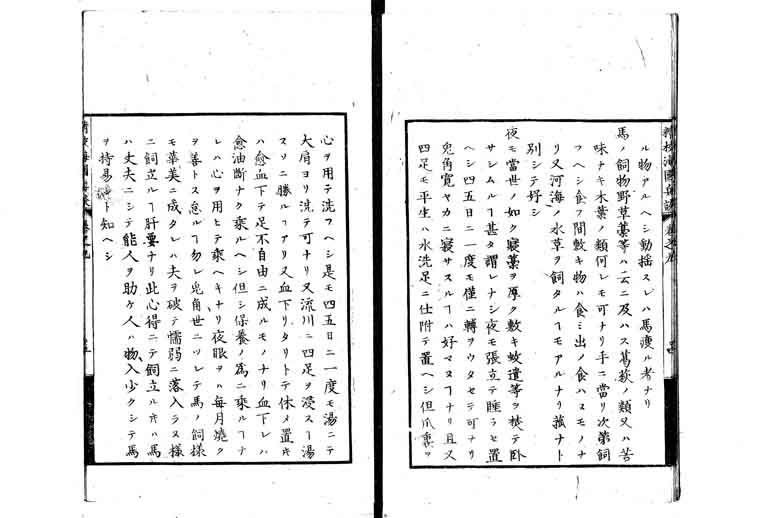 ル物アルヘシ動揺スレハ馬痩ル考ナリ
馬ノ飼物野草藁等ハ云ニ及ハス葛萩ノ類又ハ苦
味ナキ木葉ノ類何レモ可ナリ手ニ當リ次第飼
フヘシ食フ間敷キ物ハ食ミ出ノ食ハスモノナ
リ又河海ノ水草ヲ飼タルヿモアルナリ菰ナト
別シテ好シ
夜モ當世ノ如ク寝藁ヲ厚ク敷キ蚊遣等ヲ焚テ臥
サシムルヿ甚タ謂レナシ夜モ張立テ睡ラセ置
ヘシ四五日ニ一度モ僅ニ轉ヲウタセテ可ナリ
兎角寛ヤカニ寝サスルヿハ好マヌヿナリ且又
四足モ平生ハ水洗足ニ仕附テ置ヘシ但爪裏ヲ
心ヲ用テ洗フヘシ是モ四五日ニ一度モ湯ニテ
大肩ヨリ洗テ可ナリ又流川ニ四足ヲ浸スヿ湯
スソニ勝ルヿアリ又血下リタリトテ休メ置ハ
ハ愈血下テ足不自由ニ成ルモノナリ血下レハ
愈油斷ナク乗ルヘシ但シ保養ノ為ニ乗ルヿナ
レハ心ヲ用ヒテ乗ヘキナリ夜眼ヲハ毎月燒ク
ヲ善トス怠ルヿ勿レ兎角世ニツレテ馬ノ飼様
モ華美ニ成タレハ夫ヲ破テ懦弱ニ落入ラヌ様
ニ飼立ルヿ肝要ナリ此心得ニテ飼立ル片ハ馬
ハ丈夫ニシテ能人ヲ助ケ人ハ物入少クシテ馬
ヲ持易ト知ヘシ